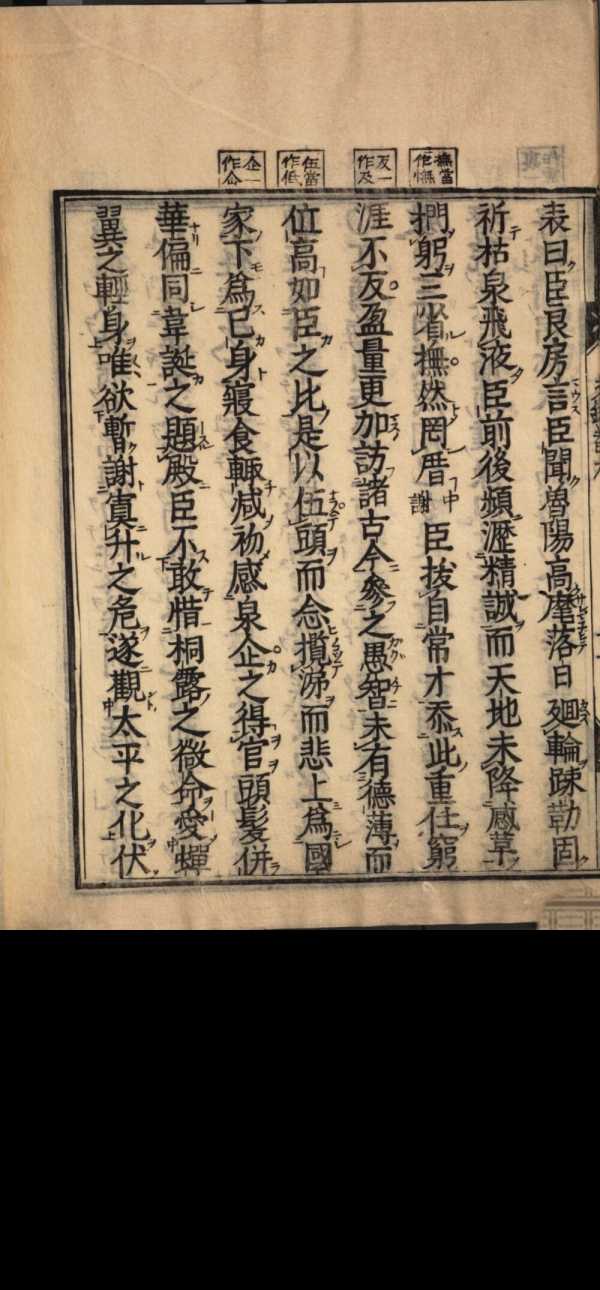 撫當作憮
反一作及
伍當作低
企一作
表曰臣良房言臣聞魯陽高麾落日廻輪踈勒固
祈枯泉飛液臣前後頻瀝精誠而天地未降感葦
捫躬三省撫然罔厝中謝臣拔自常才忝此重任窮
涯不反盈量更加訪諸古今參之愚智未有德薄而
位高如臣之比是以伍頭而念攬涕而悲上爲國
家下爲己身寢食輙減感泉企之得官頭髮併
華偏同韋誕之題殿臣不敢惜桐露之微命愛蟬
翼之輕身唯欲暫謝寘升之危遂觀太平之化伏